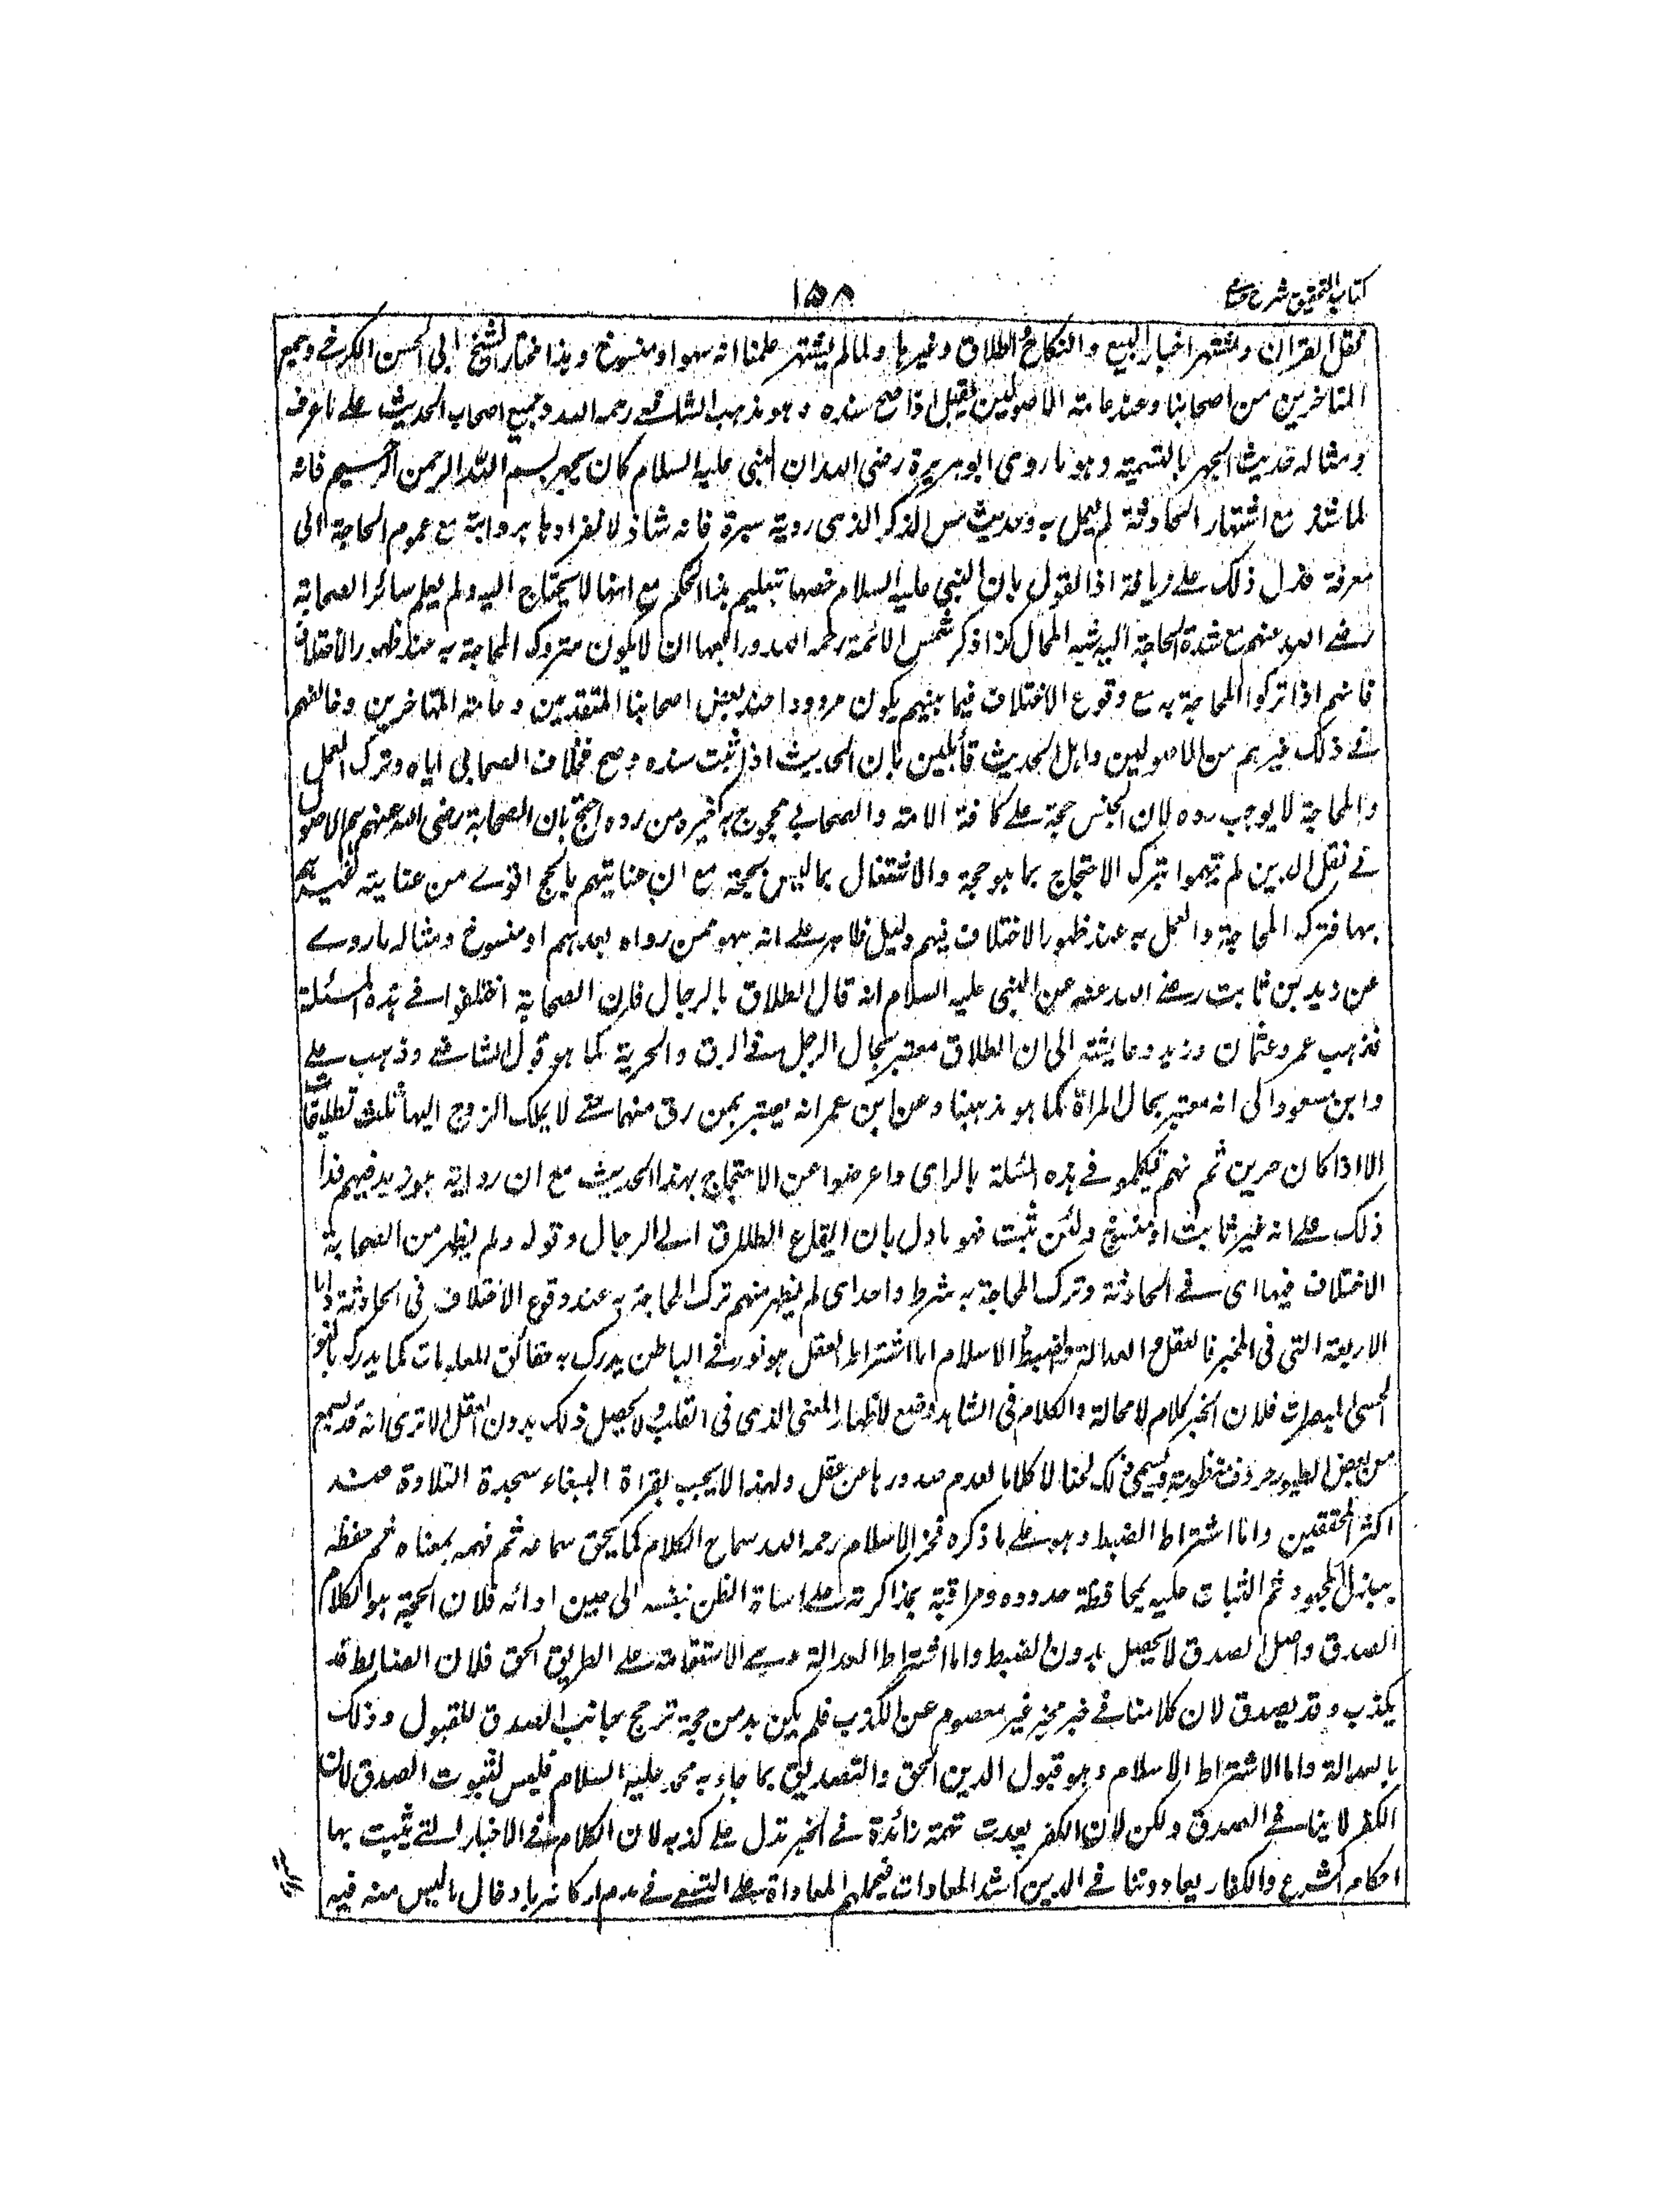 كتاب التحقيق شرح حسامى
١٥٨
كنقل القران وتشتهر اخبار البيع والنكاح والطلاق وغيرها ولما لم يشتهر علمنا انه سهو او منسوخ وهذا مختار الشيخ ابى الحسن الكرخے وجميع
المتاخرين من اصحابنا وعند عامته الاصوليين يقبل اذا صح سنده وهو مذهب الشافعے رحمه الله وجميع اصحاب الحديث علے ما عرف
ومثاله حديث الجهر بالتسمية وهو ما روى ابوهريرة رضى الله ان النبى عليه السلام كان يجهر ببسم الله الرحمن الرحيم فانه
لما شذ مع اشتهار الحادثة لم يعمل به وحديث مس الذكر الذى روية بسرة فانه شاذ لانفرادها بروايته مع عموم الحاجة الى
معرفة فدل ذلك علے زيافة اذ القول بان النبي عليه السلام خصها بتعليم هذا الحكم مع انها لا يحتاج اليه ولم يعلم سائر الصحابة
رضے الله عنهم مع شدة الحاجة اليه شبه المحال كذا ذكر شمس الائمة رحمه الله ورابعها ان لا يكون متروك المحاجة به عند ظهور الاختلاف
فانهم اذا تركوا المحاجة به مع وقوع الاختلاف فيما بينهم يكون مردودا عند بعض اصحابنا المتقدمين وعامته المتاخرين وخالفهم
فے ذلك غيرهم من الاصوليين واهل الحديث قائلين بان الحديث اذا ثبت سنده وصح فخلاف الصحابى اياه وترك العمل
والمحاجة لا يوجب رده لان الجنس حجة علے كافة الامة والصحابے محجوج به كغيره من رده احتج بان الصحابة رضى الله عنهم هم الاصول
فے نقل الدين لم يتهموا بترك الاحتجاج بما هو حجة والاشتغال بما ليس بحجة مع ان عنايتهم بالحجج اقوے من عناية غيرهم
بها فترك المحاجة والعمل به عند ظهور الاختلاف فيهم دليل ظاهر علے انه سهو ممن رواه بعدهم او منسوخ ومثاله ما روے
عن زيد بن ثابت رضے الله عنه عن النبى عليه السلام انه قال الطلاق بالرجال فان الصحابة اختلفوا فے هذه المسئلة
فذهب عمر وعثمان وزيد وعايشة الى ان الطلاق معتبر بحال الرجل فے الرق والحرية كما هو قول الشافعے وذهب علے
وابن مسعود الى انه معتبر بحال المراة كما هو مذهبنا وعن ابن عمر انه يعتبر بمن رق منهما حتے لا يملك الزوج اليها ثلث تطليقات
الا اذا كان حرين ثم انهم تكلموا فے هذه المسئلة بالراى واعرضوا عن الاحتجاج بهذا الحديث مع ان رواية هو زيد فيهم فدل
ذلك علے انه غير ثابت او منسوخ ولئن ثبت فهو ماول بان ايقاع الطلاق الے الرجال وقوله ولم يظهر من الصحابة
الاختلاف فيها اى فے الحادثة وترك المحاجة به شرط واحد اى لم يظهر منهم ترك المحاجة به عند وقوع الاختلاف فى الحادثة واما
الاربعة التى فى المخبر فالعقل والعدالة والضبط والاسلام اما اشتراط العقل هو نور فے الباطن يدرك به حقائق المعلومات كما يدرك بالنور
الحسى المبصرات فلان الخبر كلام لا محالة والكلام فى الشاهد وضع لاظهار المعنى الذى فى القلب ولا يحصل ذلك بدون العقل الا ترى انه قد يسمع
من بعض الطيور حروف منظومة ويسمى ذلك لحنا لا كلاما لعدم صدورها عن عقل ولهذا لا يجب بقراة الببغاء سجدة التلاوة عند
اكثر المحققين واما اشتراط الضبط وهو علے ما ذكره فخر الاسلام رحمه الله سماع الكلام كما يحق سماعه ثم فهمه بمعناه ثم حفظه
ببذل المجهود ثم الثبات عليه بمحافظة حدوده ومراقبة بمذاكرته علے اساة الظن بنفسه الى حين ادائه فلان الحجة هو الكلام
الصدق واصل الصدق لا يحصل بدون الضبط واما اشتراط العدالة وهے الاستقامة علے الطريق الحق فلان الضابط قد
يكذب وقد يصدق لان كلامنا فے خبر مخبر غير معصوم عن الكذب فلم يكن بد من حجة ترجح بجانب الصدق للقبول وذلك
بالعدالة واما الاشتراط الاسلام وهو قبول الدين الحق والتصديق بما جاء به محمد عليه السلام فليس لثبوت الصدق لان
الكفر لا ينافے الصدق ولكن لان الكفر يحدث تهمة زائدة فے الخبر تدل علے كذبه لان الكلام فے الاخبار التے تثبت بها
احكام الشرع والكفار يعادوننا فے الدين اشد المعادات فيحملهم المعاداة علے السعے فے هدم اركانه بادخال ما ليس منه فيه